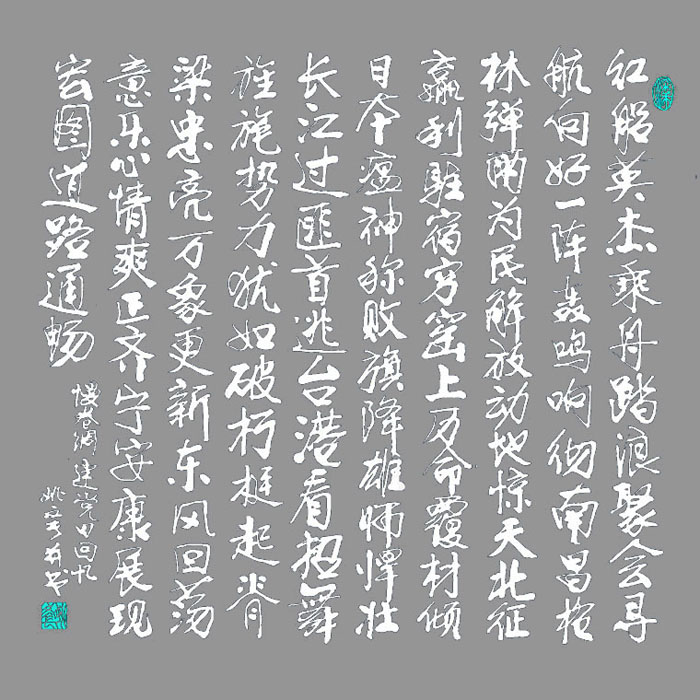 红船英杰乘舟踏浪聚会寻
航向好一阵轰鸣响彻南昌枪
林弹雨为民解放动地惊天北征
赢利驻宿穷窑上万命覆材倾
日本瘟神称败旗降雄师悍壮
长江过匪首逃台港看扭舞
旌旎势力犹如破朽挺起脊
梁忠亮万象更新东风回荡
意乐心情爽齐宁安康展现
宏图道路通畅
慢卷绸建党日回忆
姚并书